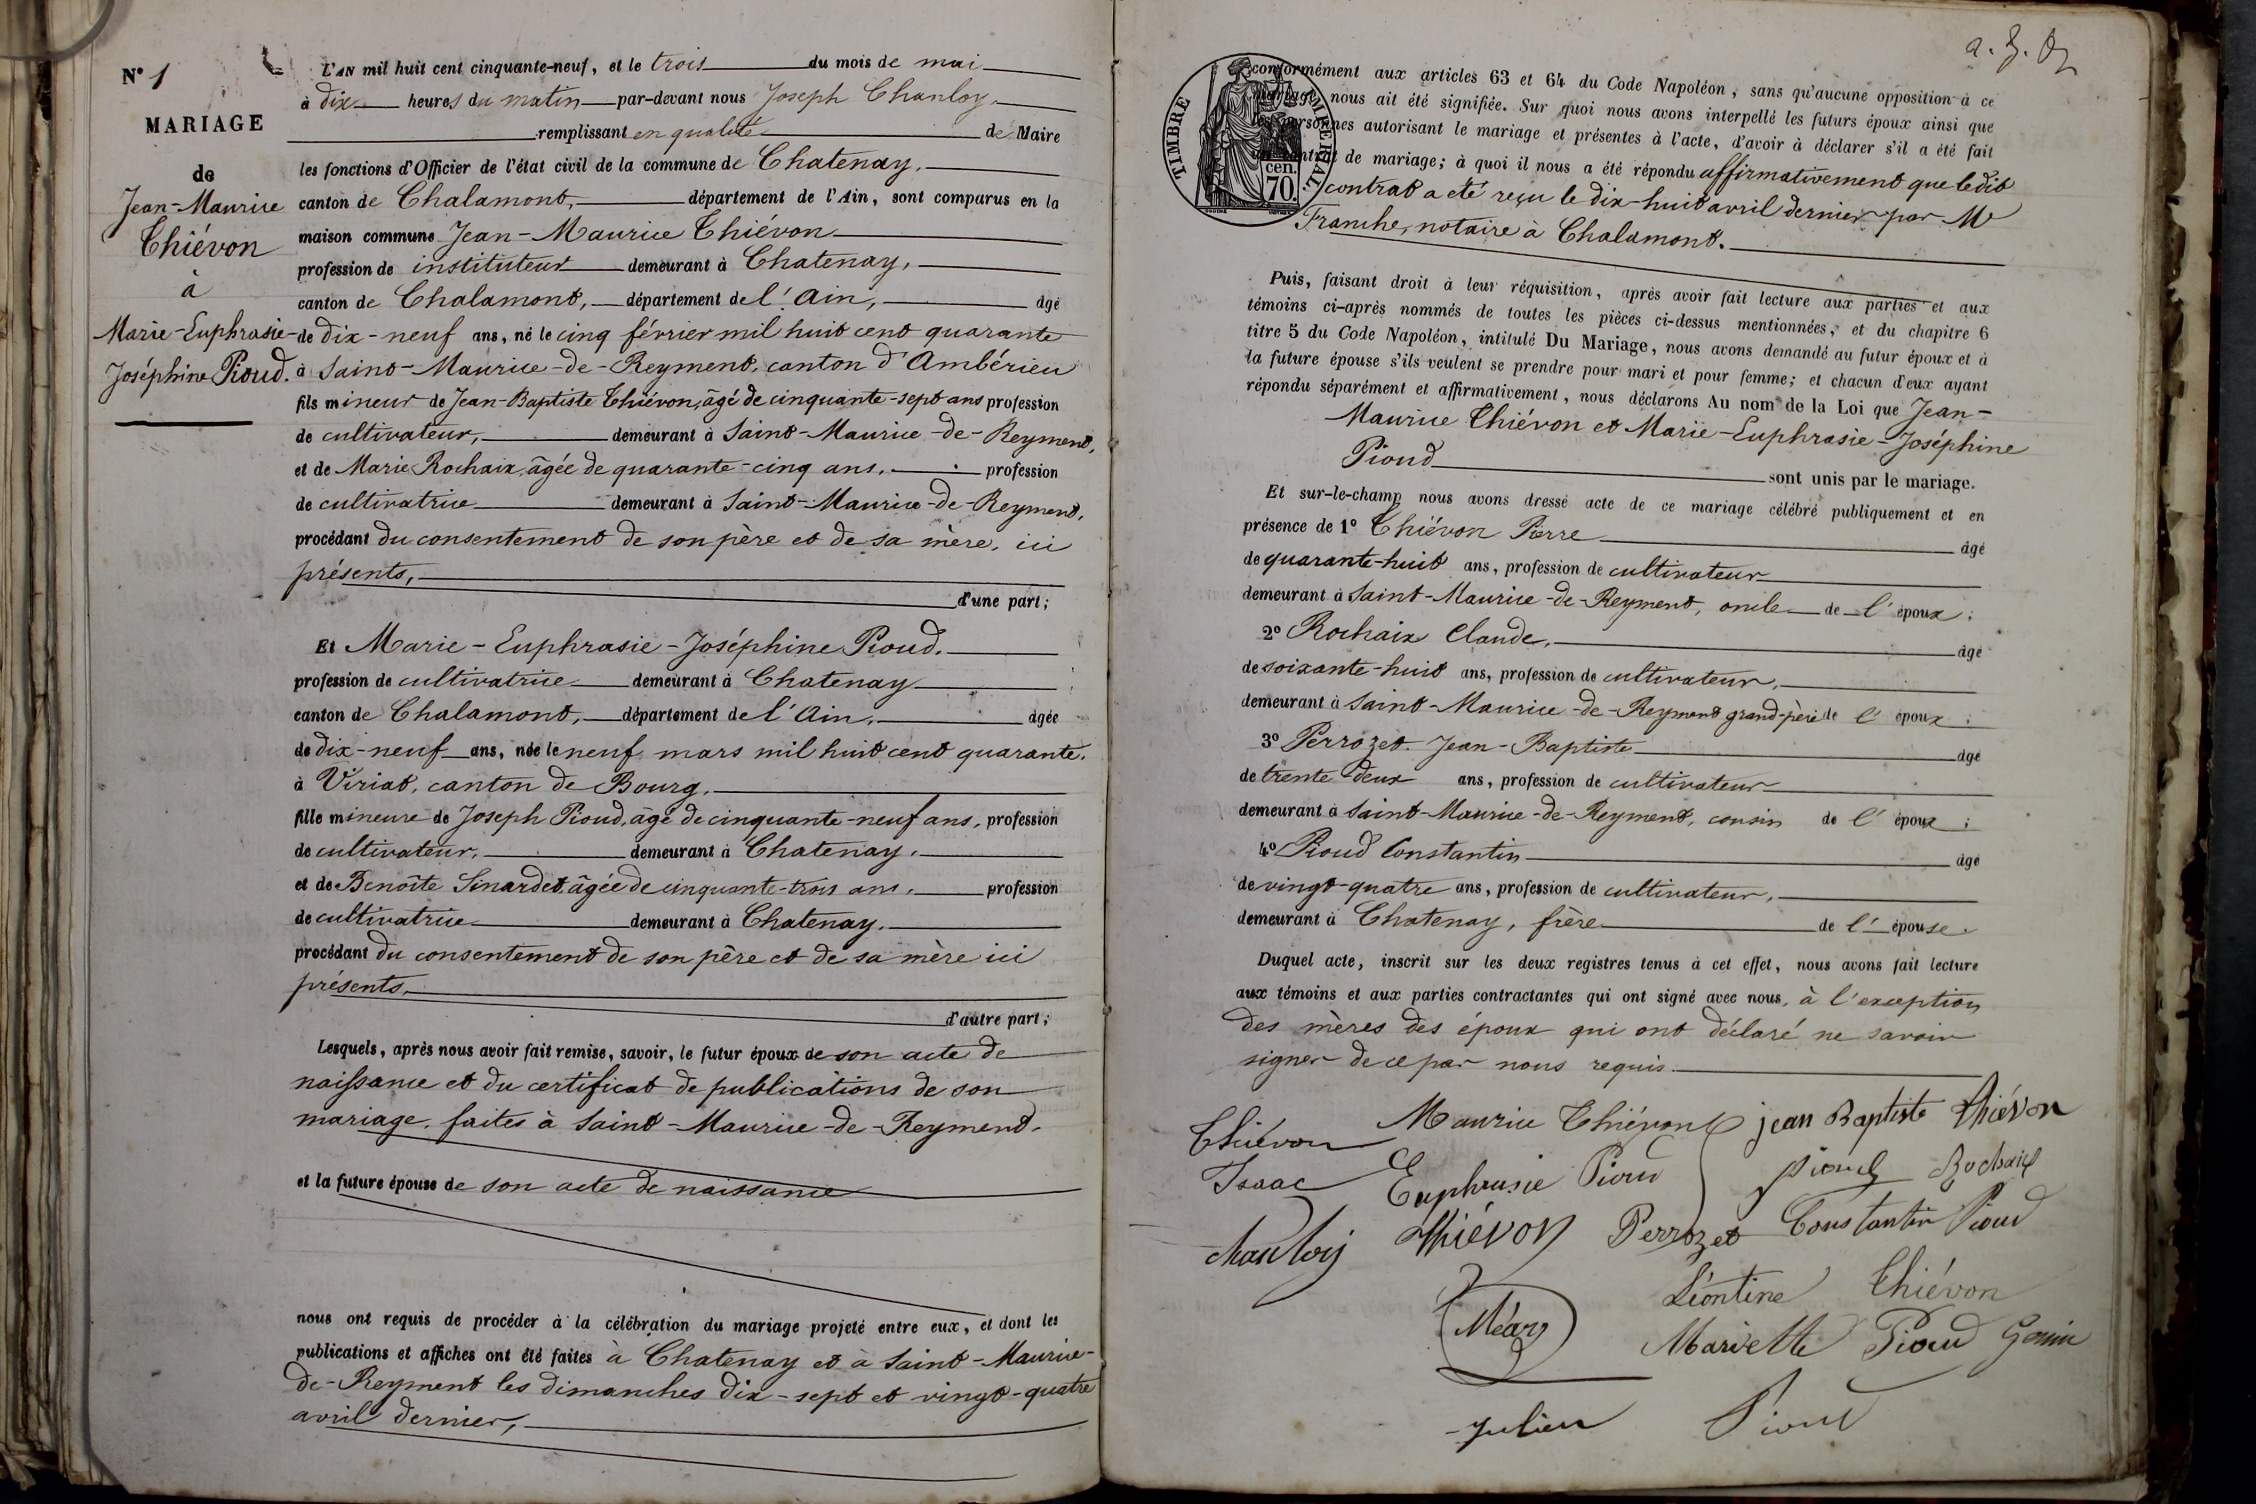 N° 1
MARIAGE
de
Jean-Maurice
Thiévon
à
Marie-Euphrasie-
Joséphine Pioud.
L'AN mil huit cent cinquante-neuf, et le trois du mois de mai
à dix heures du matin par-devant nous Joseph Chanloy
remplissant en qualité de Maire
les fonctions d'Officier de l'état civil de la commune de Chatenay,
canton de Chalamont, département de l'Ain, sont comparus en la
maison commune Jean-Maurice Thiévon
profession de instituteur demeurant à Chatenay,
canton de Chalamont, département de l'Ain, âgé
de dix-neuf ans, né le cinq février mil huit cent quarante
à Saint-Maurice-de-Reyment, canton d'Ambérieu
fils mineur de Jean-Baptiste Thiévon, âgé de cinquante-sept ans profession
de cultivateur, demeurant à Saint-Maurice-de-Reyment,
et de Marie Rochaix, âgée de quarante-cinq ans, profession
de cultivatrice demeurant à Saint-Maurice-de-Reyment,
procédant du consentement de son père et de sa mère, ici
présents,
d'une part;
Et Marie-Euphrasie-Joséphine Pioud.
profession de cultivatrice demeurant à Chatenay
canton de Chalamont, département de l'Ain, âgée
de dix-neuf ans, née le neuf mars mil huit cent quarante.
à Viriat, canton de Bourg.
fille mineure de Joseph Pioud, âgé de cinquante-neuf ans, profession
de cultivateur, demeurant à Chatenay,
et de Benoîte Sinardet âgée de cinquante-trois ans, profession
de cultivatrice demeurant à Chatenay.
procédant du consentement de son père et de sa mère ici
présents,
d'autre part;
Lesquels, après nous avoir fait remise, savoir, le futur époux de son acte de
naissance et du certificat de publications de son
mariage, faites à Saint-Maurice-de-Reyment.
et la future épouse de son acte de naissance
nous ont requis de procéder à la célébration du mariage projeté entre eux, et dont les
publications et affiches ont été faites à Chatenay et à Saint-Maurice-
de-Reyment les dimanches dix-sept et vingt-quatre
avril dernier,
TIMBRE IMPÉRIAL.
cen.
70.
conformément aux articles 63 et 64 du Code Napoléon, sans qu'aucune opposition à ce
mariage nous ait été signifiée. Sur quoi nous avons interpellé les futurs époux ainsi que
les personnes autorisant le mariage et présentes à l'acte, d'avoir à déclarer s'il a été fait
un contrat de mariage; à quoi il nous a été répondu affirmativement que ledit
contrat a été reçu le dix-huit avril dernier par Me
Franche, notaire à Chalamont.
Puis, faisant droit à leur réquisition, après avoir fait lecture aux parties et aux
témoins ci-après nommés de toutes les pièces ci-dessus mentionnées, et du chapitre 6
titre 5 du Code Napoléon, intitulé Du Mariage, nous avons demandé au futur époux et à
la future épouse s'ils veulent se prendre pour mari et pour femme; et chacun d'eux ayant
répondu séparément et affirmativement, nous déclarons Au nom de la Loi que Jean-
Maurice Thiévon et Marie-Euphrasie-Joséphine
Pioud sont unis par le mariage.
Et sur-le-champ nous avons dressé acte de ce mariage célébré publiquement et en
présence de 1° Thiévon Pierre âgé
de quarante-huit ans, profession de cultivateur
demeurant à Saint-Maurice-de-Reyment, oncle de l'époux;
2° Rochaix Claude, âgé
de soixante-huit ans, profession de cultivateur,
demeurant à Saint-Maurice-de-Reyment grand-père de l'époux;
3° Perrozet Jean-Baptiste âgé
de trente deux ans, profession de cultivateur
demeurant à Saint-Maurice-de-Reyment, cousin de l'époux;
4° Pioud Constantin âgé
de vingt-quatre ans, profession de cultivateur,
demeurant à Chatenay, frère de l'épouse.
Duquel acte, inscrit sur les deux registres tenus à cet effet, nous avons fait lecture
aux témoins et aux parties contractantes qui ont signé avec nous, à l'exception
des mères des époux qui ont déclaré ne savoir
signer de ce par nous requis.
Maurice Thiévon jean Baptiste thiévon
Thiévon
Isaac Euphrasie Pioud pioud Rochaix
chanloy thiévon Perrozet Constantin Pioud
Léontine Thiévon
Méary Mariette Pioud Genin
Julien Pioud